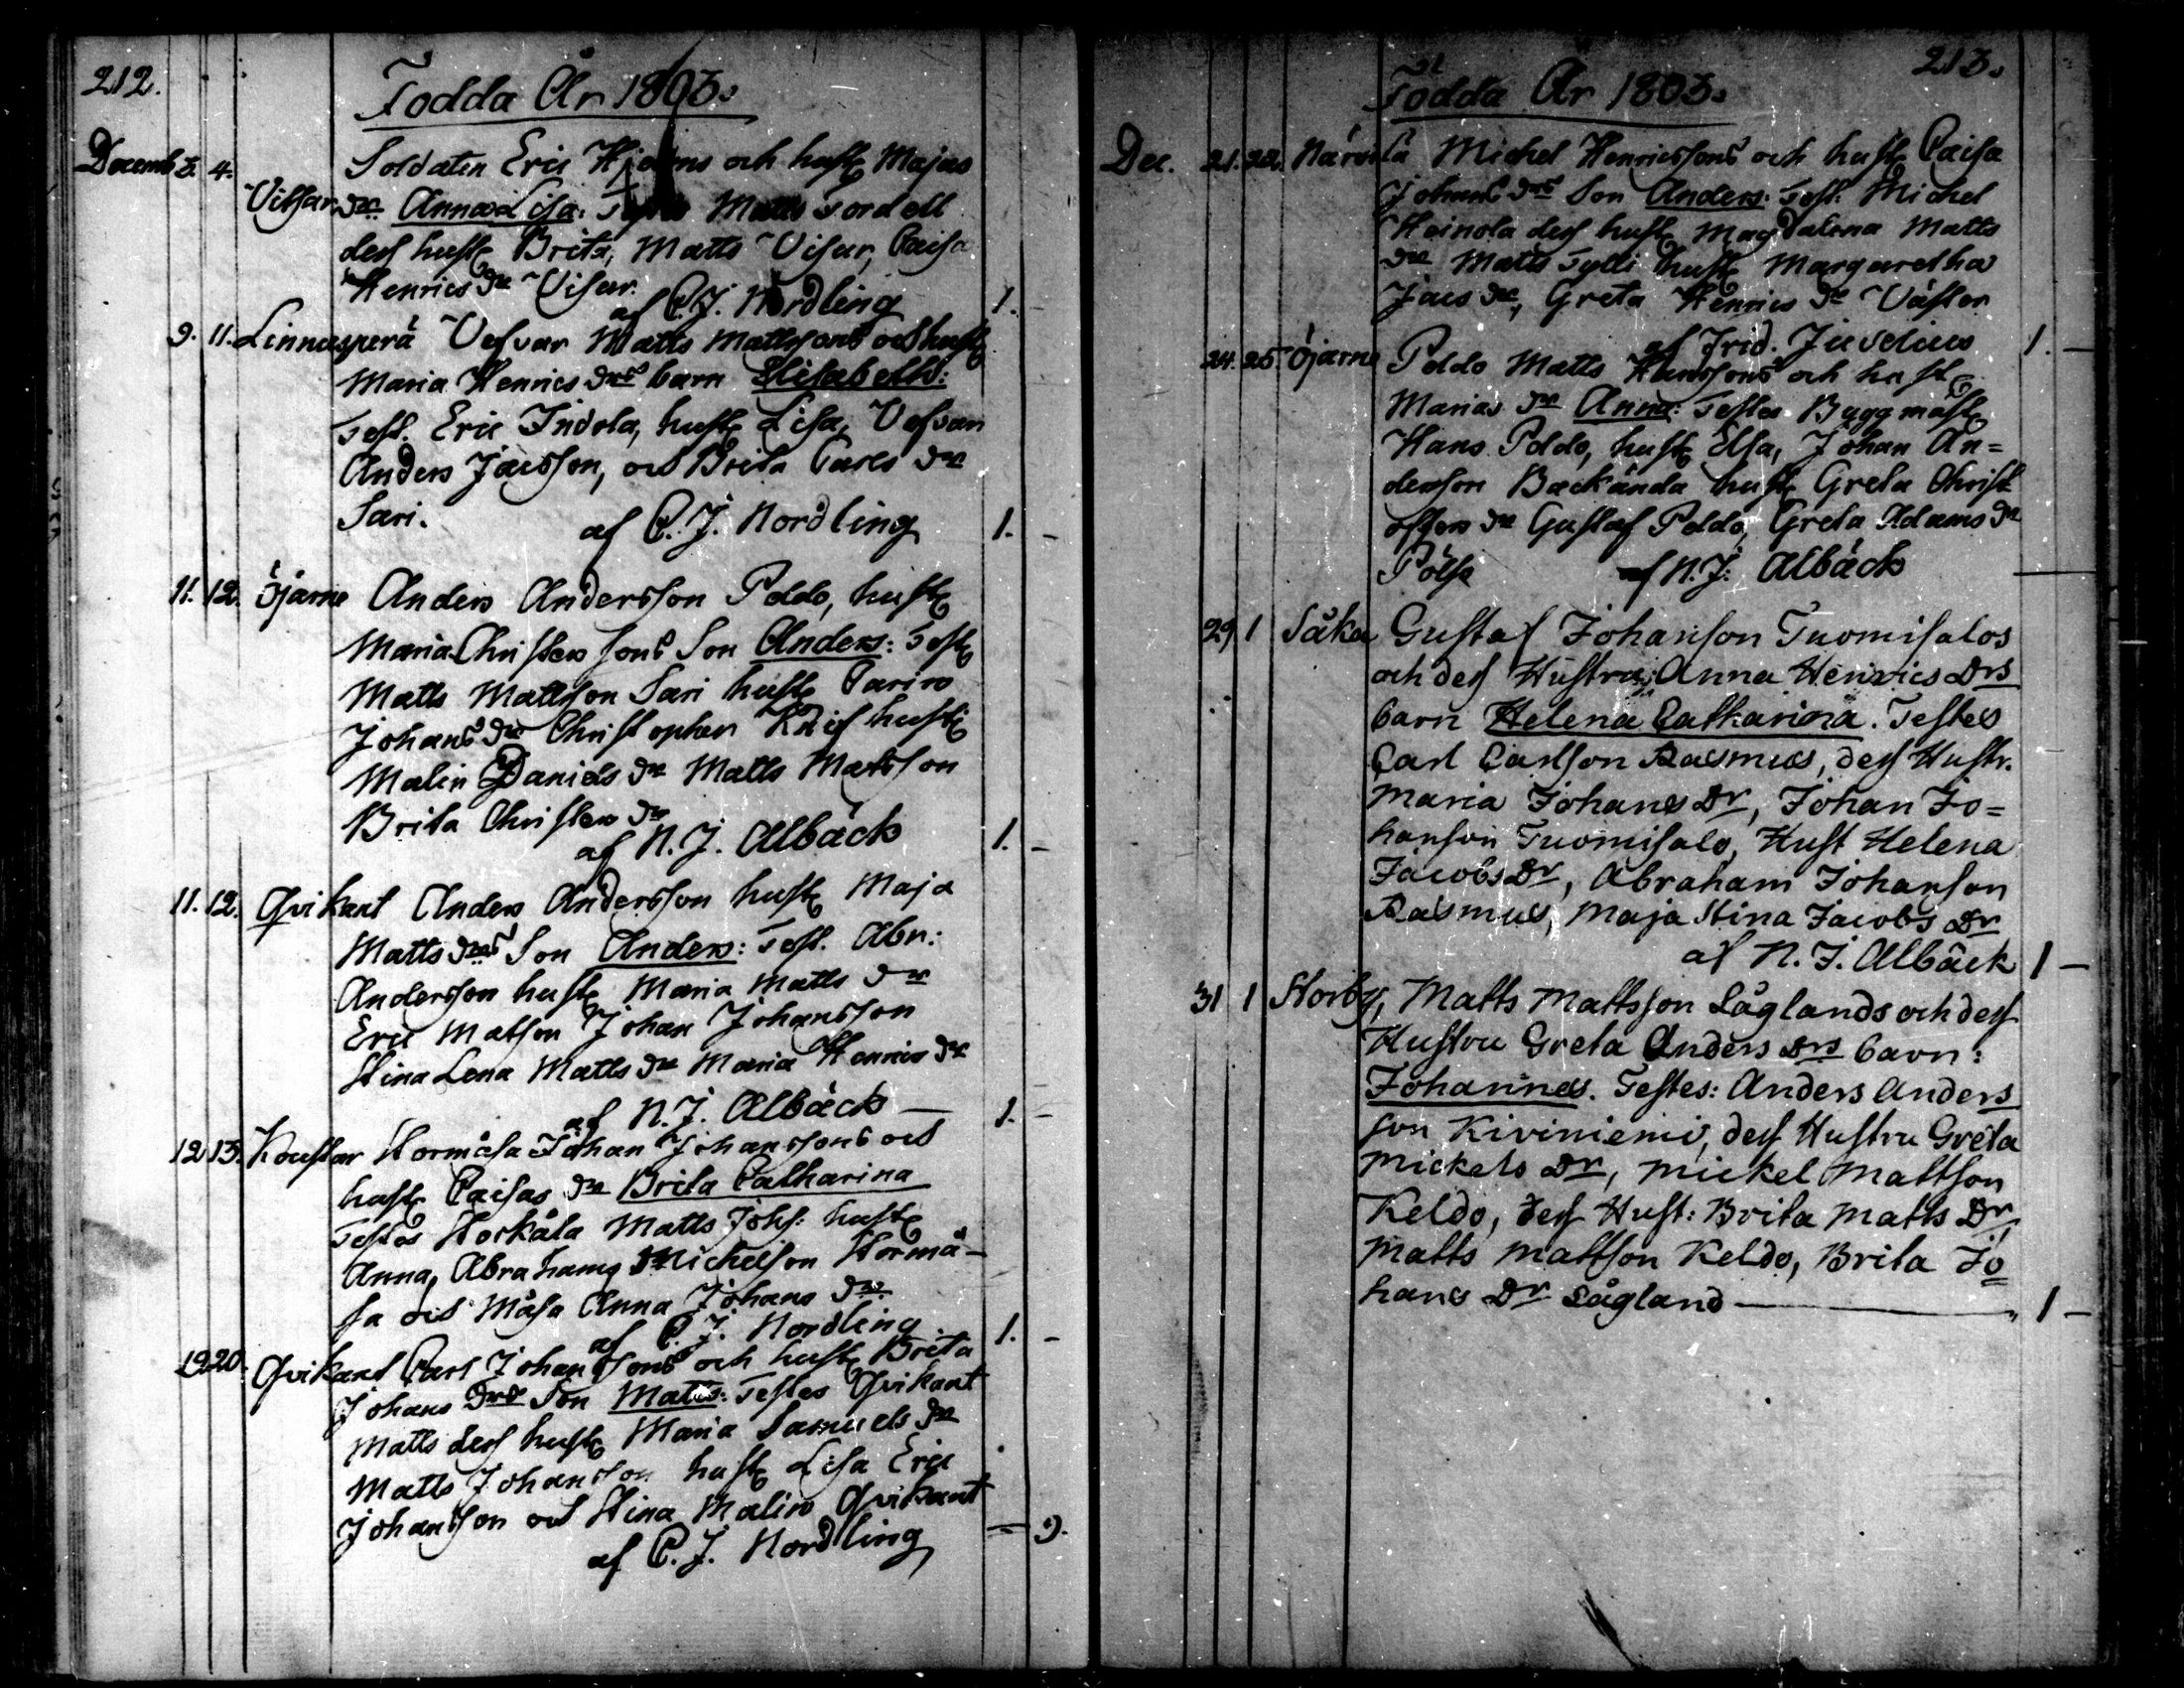 212.
Födda År 1803.
Decemb 3. 4. Soldaten Eric Hjelms och hust Majas
Vitsar dr Anna Lisa: Testes Matts Fordell
dess hust Brita, Matts Visar, Caisa
Henrics dr Visar.
af C. J. Nordling 1.
9. 11. Linnusperä Vefvar Matts Mattssons och hust
Maria Henrics drs barn Elisabeth:
Test. Eric Indola, hust Lisa, Vefvan
Anders Jacsson, och Brita Carls dr
Sari.
af C. J. Nordling 1. -
11. 12. Öjarne Anders Andersson Poldo, hust
Maria Christers sons Son Anders: Test
Matts Mattsson Sari hust Carin
Johans dr Christopher Knif hust
Malin Daniels dr Matts Mattsson
Brita Christers dr
af N. J. Albäck 1. -
11. 12. Qvikant Anders Andersson hust Maja
Matts drs Son Anders: Test. Abr:
Andersson hust Maria Matts dr
Eric Matson Johan Johansson
Stina Lena Matts dr Maria Henrics dr
af N. J. Albäck — 1. -
12 13. Koustar Stormåsa Johan Johanssons och
hust Caisas dr Brita Catharina
Testes Storkåla Matts Johs: hust
Anna, Abraham Michelson Stormå-
sa och Måsa Anna Johans dr
af C. J. Nordling. 1. -
19 20. Qvikant Carl Johanssons och hust Brita
Johans drs Son Matts: Testes Qvikant
Matts dess hust Maria Samuels dr
Matts Johansson hust Lisa Eric
Johansson och Stina Malin Qvikant
af C. J. Nordling — 1.
213.
Födda År 1803.
Dec. 21. 22. Närvilä Michel Henricssons och hust Caisa
Johans drs Son Anders: Test. Michel
Heinola dess hust Magdalena Matts
dr Matts Tylli hust Margaretha
Jacs dr, Greta Henrics dr Väster
af Frid. Juvelius 1. —
24. 25. Öjarne Poldo Matts Hanssons och hust
Marias dr Anna: Testes Byggmäst
Hans Poldo, hust Elsa, Johan An=
dersson Backända hust Greta Christ
offers dr Gustaf Poldo, Greta Adams dr
Pölsä af N. J. Albäck —
29 1 Såka Gustaf Johanson Tuomisalos
och dess Hustru, Anna Henrics Drs
barn Helena Catharina. Testes
Carl Carlson Rasmus, dess Hustr.
Maria Johans Dr, Johan Jo=
hanson Tuomisalo, Hust Helena
Jacobs Dr, Abraham Johanson
Rasmus, Maja Stina Jacobs Dr
af N. J. Albäck 1 —
31 1 Storby, Matts Mattsson Låglands och dess
Hustru Greta Anders Drs barn:
Johannes. Testes: Anders Anders
son Kiviniemi, dess Hustru Greta
Mickels Dr, Mickel Mattson
Keldo, dess Hust: Brita Matts Dr,
Matts Mattson Keldo, Brita Jo
hans Dr Lågland — 1 —